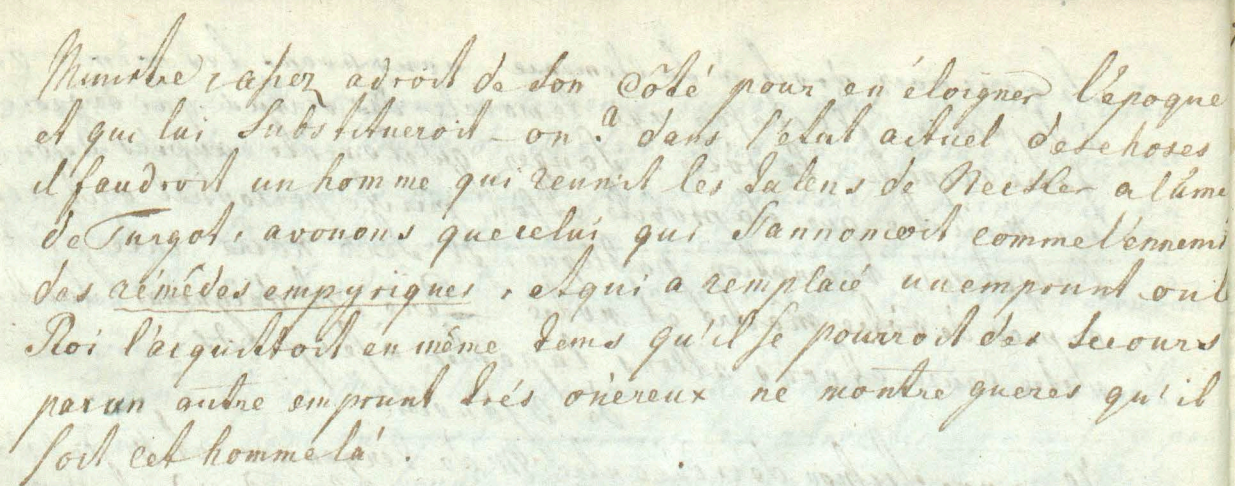 Ministre, assez adroit de son côté pour en éloigner l'époque
et qui lui substitueroit-on? dans l'état actuel des choses
il faudroit un homme qui reunit les talens de Necker a l'ame
de Turgot, avonons que celui qui s'annoncoit comme l'ennemi
des rémêdes empyriques, et qui a remplacé un emprunt ou l
Roi s'acquittoit en même tems qu'il se pourvoit des secours
par un autre emprunt trés onéreux ne montre gueres qu'il
soit cet homme là.